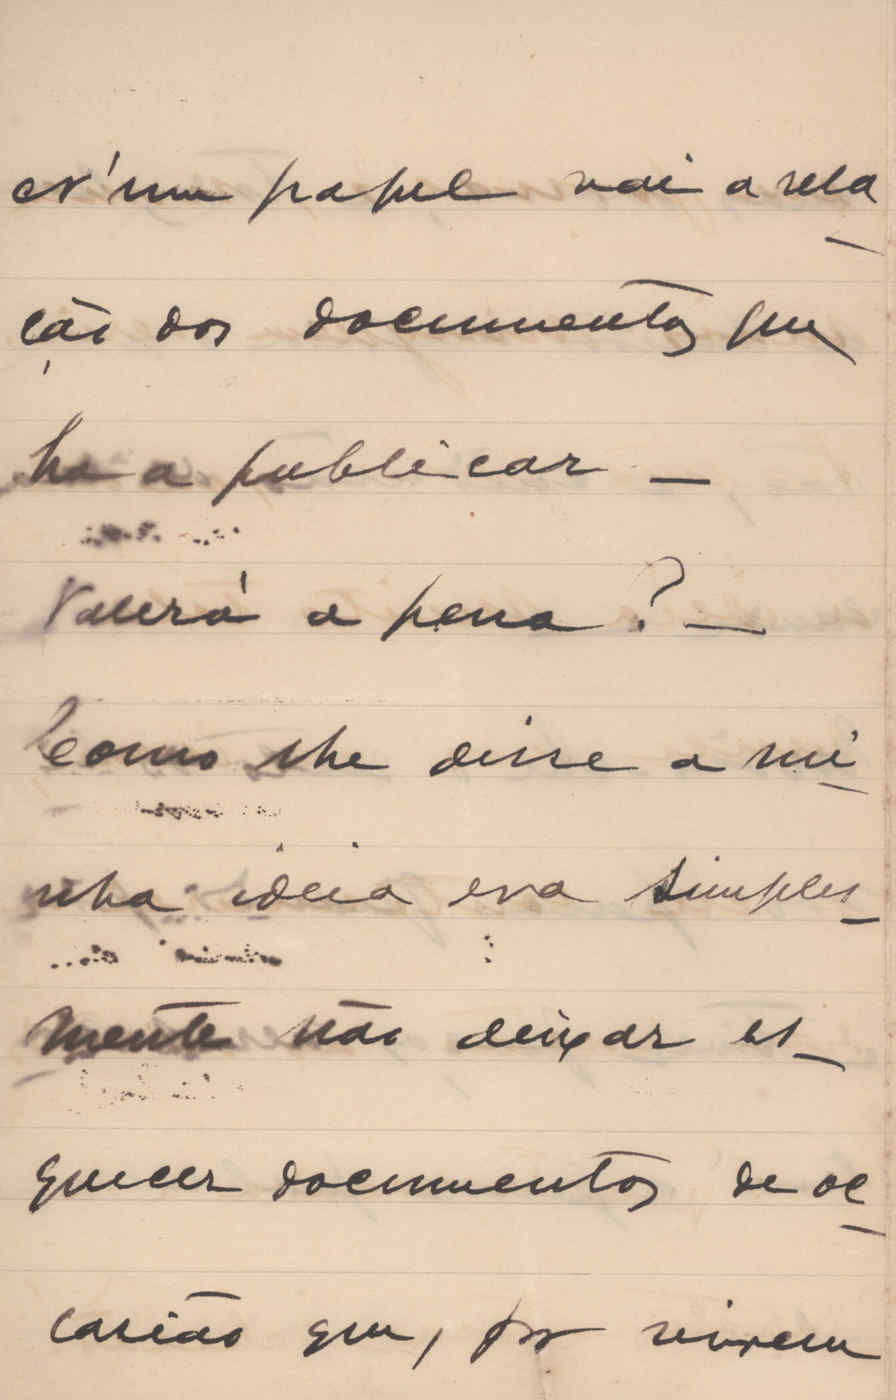 N'um papel vai a rela-
ção dos documentos que
ha a publicar —
Valerá a pena? —
Como lhe disse a mi-
nha ideia era simples-
mente não deixar es-
quecer documentos de oc-
casião que, por